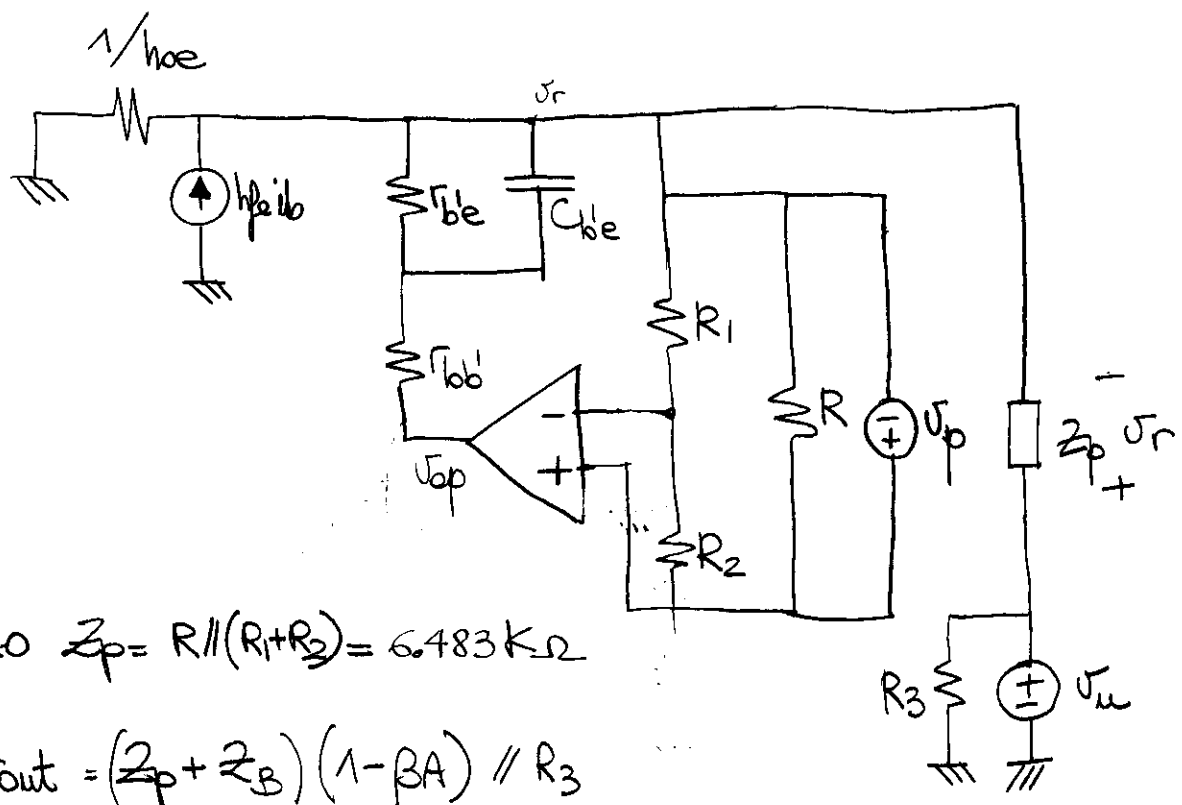 1/hoe
vr
hfe ib
rb'e
Cb'e
R1
rbb'
-
+
vop
R2
R
-
+
vp
-
Zp vr
+
R3
+
-
vu
Zp = R//(R1+R2) = 6.483 KΩ
out = (Zp + ZB)(1-βA) // R3